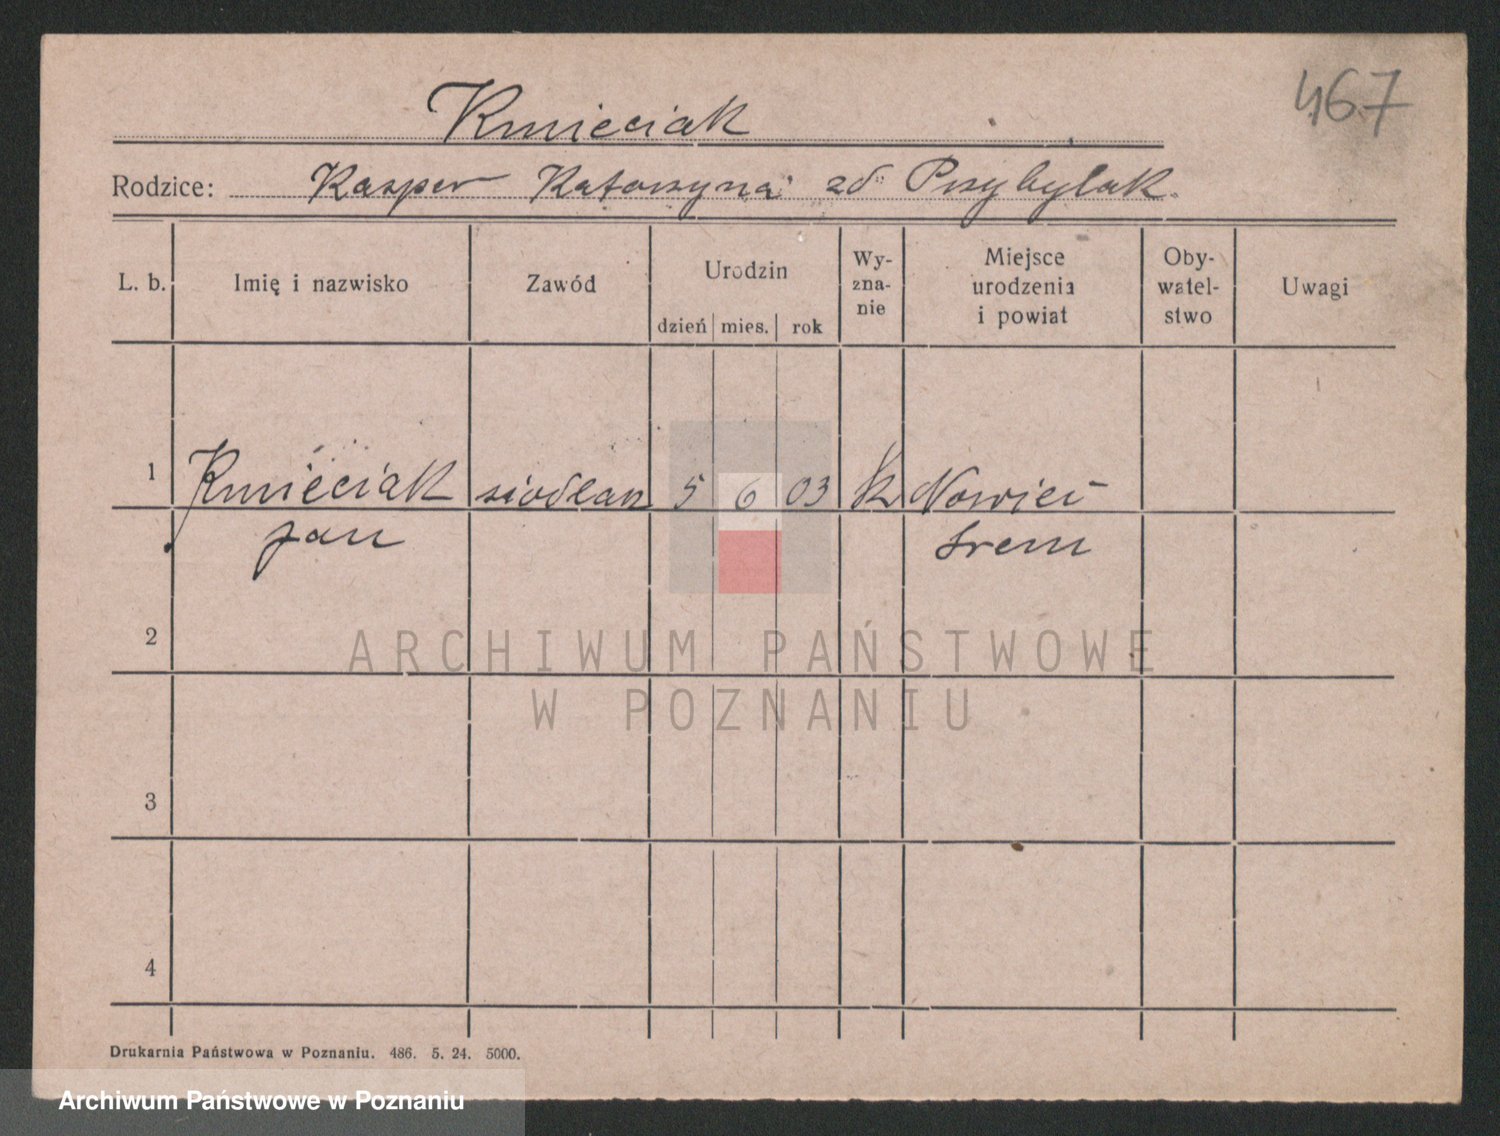 467
Kmieciak
Rodzice: Kasper Katarzyna zd Przybylak
L. b.
Imię i nazwisko
Zawód
Urodzin
dzień mies. rok
Wy-
zna-
nie
Miejsce
urodzenia
i powiat
Oby-
watel-
stwo
Uwagi
1 Kmieciak siodlarz 5 6 03 k Nowiec
Jan Śrem
2
3
4
ARCHIWUM PAŃSTWOWE
W POZNANIU
Drukarnia Państwowa w Poznaniu. 486. 5. 24. 5000.
Archiwum Państwowe w Poznaniu